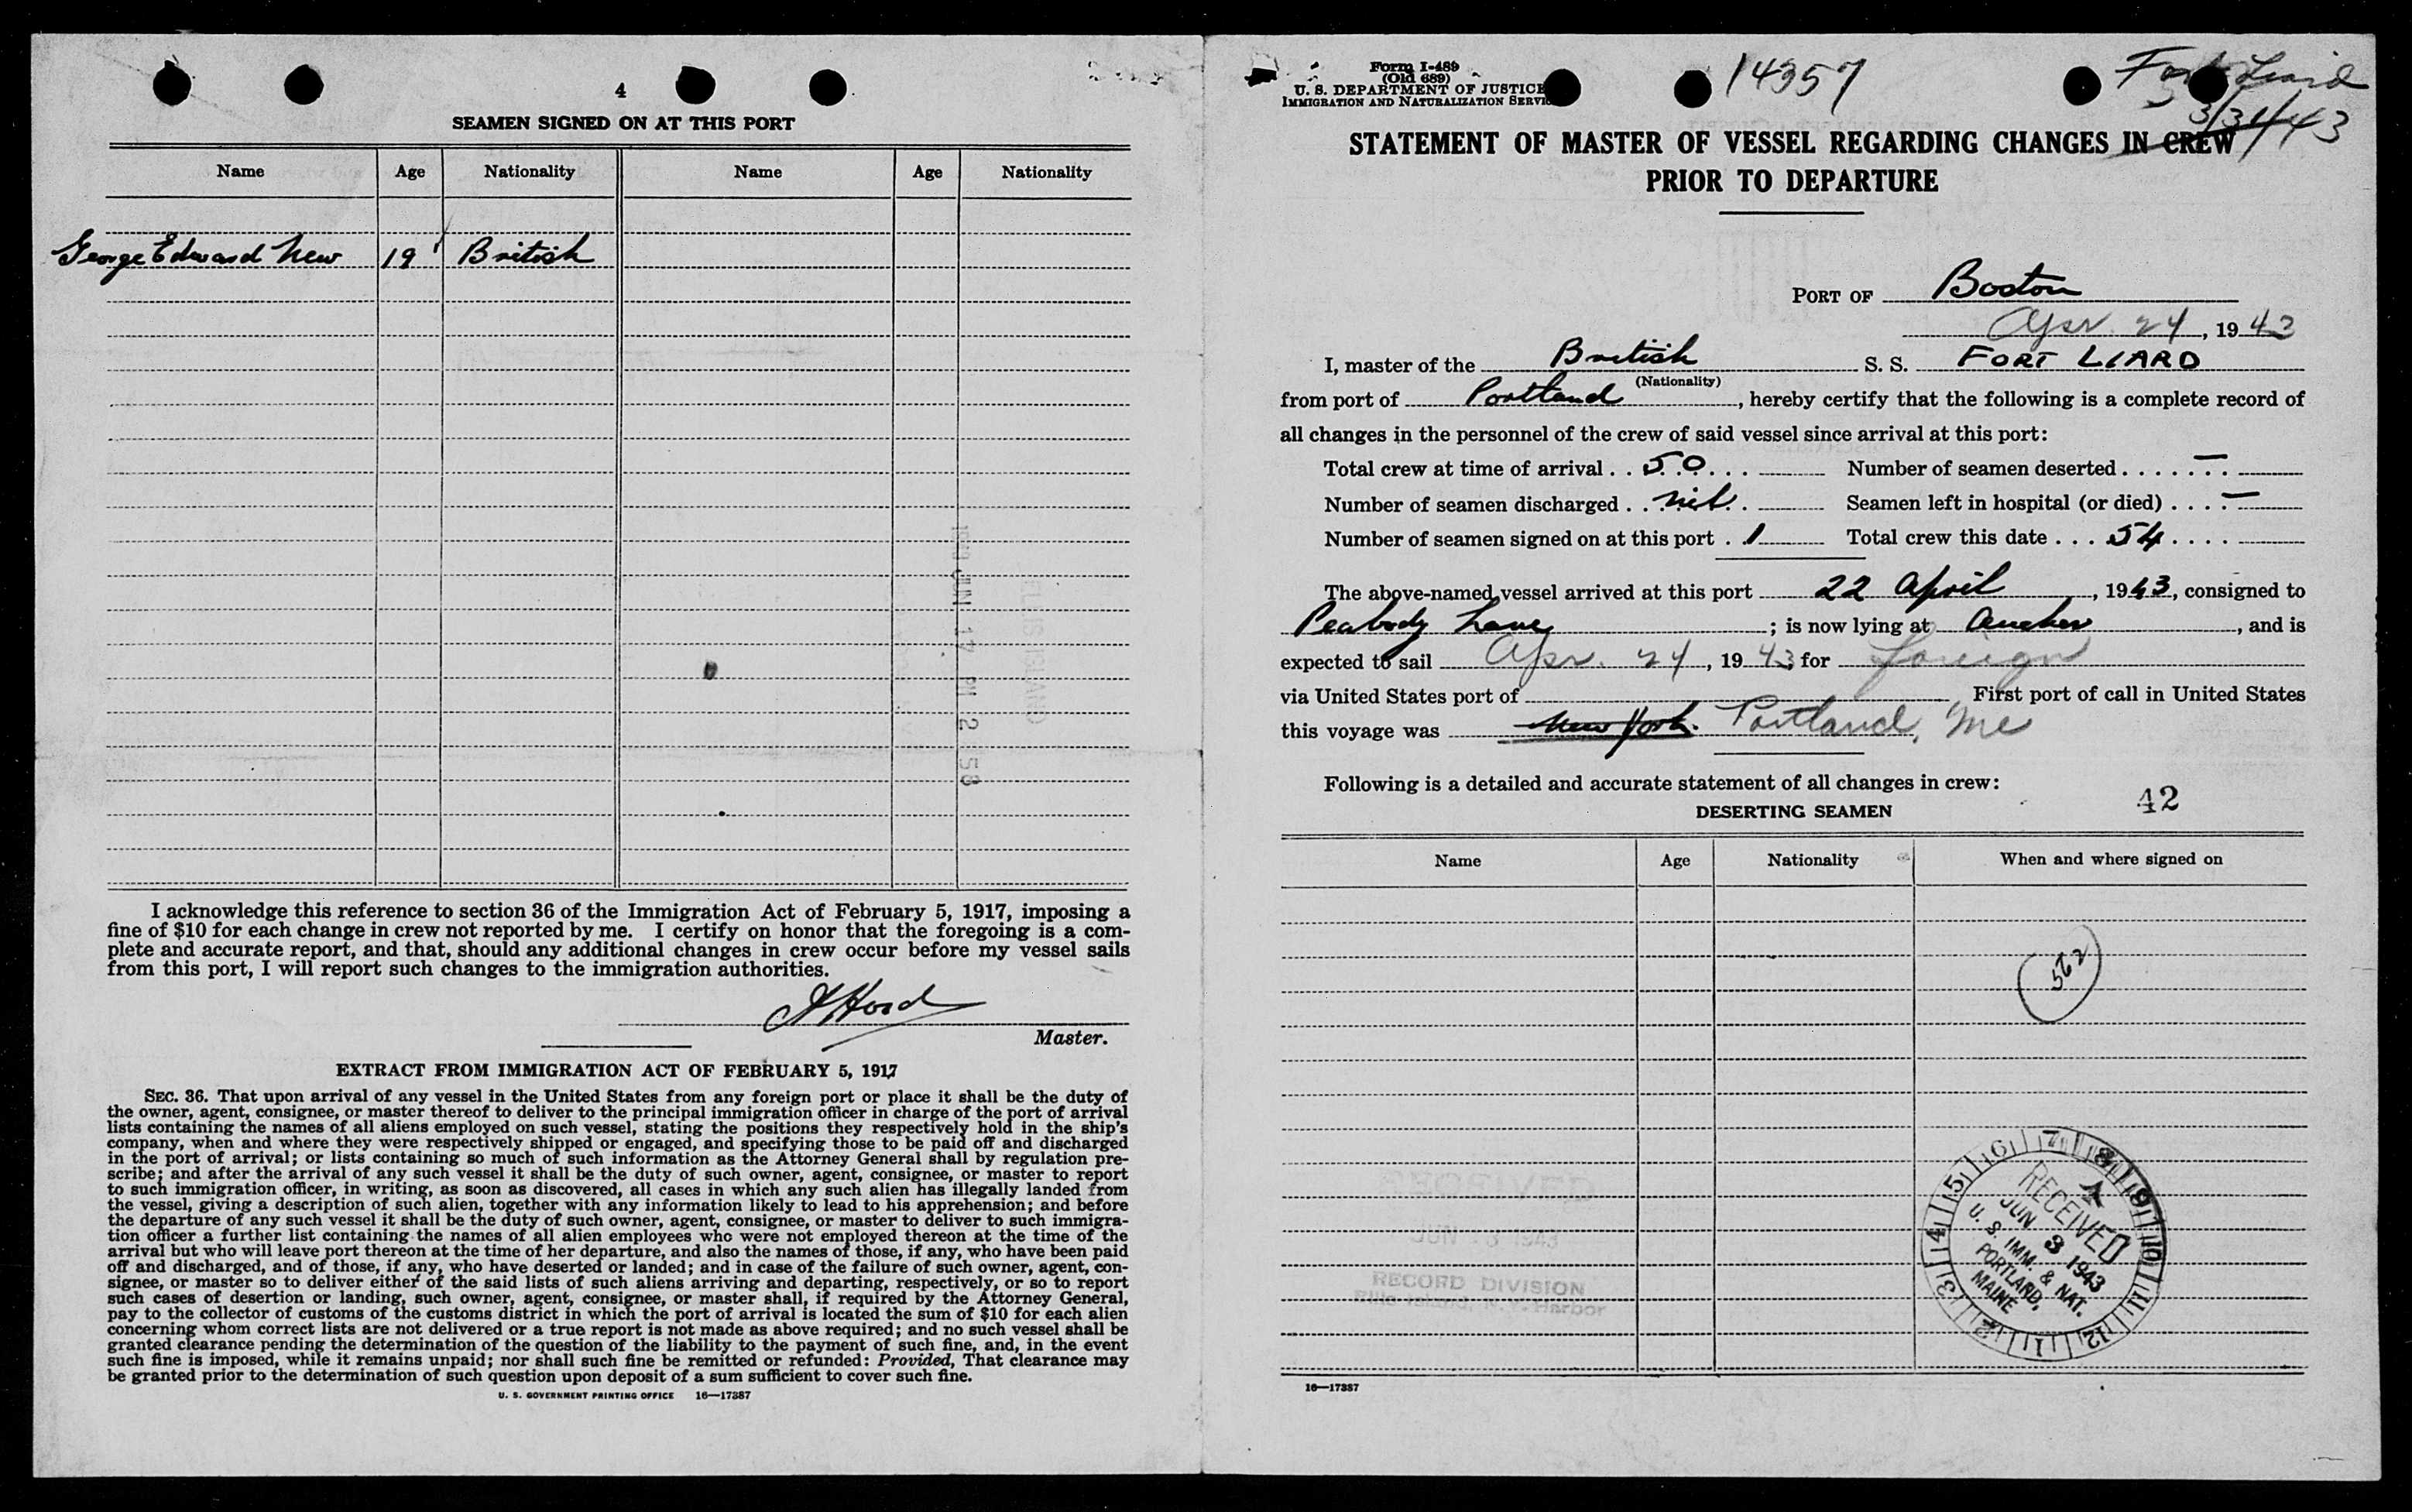 4
SEAMEN SIGNED ON AT THIS PORT
Name Age Nationality Name Age Nationality
George Edward New 19 British
I acknowledge this reference to section 36 of the Immigration Act of February 5, 1917, imposing a
fine of $10 for each change in crew not reported by me. I certify on honor that the foregoing is a com-
plete and accurate report, and that, should any additional changes in crew occur before my vessel sails
from this port, I will report such changes to the immigration authorities.
Master.
EXTRACT FROM IMMIGRATION ACT OF FEBRUARY 5, 1917
SEC. 36. That upon arrival of any vessel in the United States from any foreign port or place it shall be the duty of
the owner, agent, consignee, or master thereof to deliver to the principal immigration officer in charge of the port of arrival
lists containing the names of all aliens employed on such vessel, stating the positions they respectively hold in the ship's
company, when and where they were respectively shipped or engaged, and specifying those to be paid off and discharged
in the port of arrival; or lists containing so much of such information as the Attorney General shall by regulation pre-
scribe; and after the arrival of any such vessel it shall be the duty of such owner, agent, consignee, or master to report
to such immigration officer, in writing, as soon as discovered, all cases in which any such alien has illegally landed from
the vessel, giving a description of such alien, together with any information likely to lead to his apprehension; and before
the departure of any such vessel it shall be the duty of such owner, agent, consignee, or master to deliver to such immigra-
tion officer a further list containing the names of all alien employees who were not employed thereon at the time of the
arrival but who will leave port thereon at the time of her departure, and also the names of those, if any, who have been paid
off and discharged, and of those, if any, who have deserted or landed; and in case of the failure of such owner, agent, con-
signee, or master so to deliver either of the said lists of such aliens arriving and departing, respectively, or so to report
such cases of desertion or landing, such owner, agent, consignee, or master shall, if required by the Attorney General,
pay to the collector of customs of the customs district in which the port of arrival is located the sum of $10 for each alien
concerning whom correct lists are not delivered or a true report is not made as above required; and no such vessel shall be
granted clearance pending the determination of the question of the liability to the payment of such fine, and, in the event
such fine is imposed, while it remains unpaid; nor shall such fine be remitted or refunded: Provided, That clearance may
be granted prior to the determination of such question upon deposit of a sum sufficient to cover such fine.
U. S. GOVERNMENT PRINTING OFFICE 16—17387
Form I-489
(Old 689)
U. S. DEPARTMENT OF JUSTICE
IMMIGRATION AND NATURALIZATION SERVICE
14957
Fort Liard
3/31/43
STATEMENT OF MASTER OF VESSEL REGARDING CHANGES IN CREW
PRIOR TO DEPARTURE
PORT OF Boston
Apr. 24, 1943
I, master of the British S. S. FORT LIARD
(Nationality)
from port of Portland, hereby certify that the following is a complete record of
all changes in the personnel of the crew of said vessel since arrival at this port:
Total crew at time of arrival . . 50 . . . Number of seamen deserted . . . . . — .
Number of seamen discharged . . nil . Seamen left in hospital (or died) . . . . —
Number of seamen signed on at this port . . 1 Total crew this date . . . 54 . . . .
The above-named vessel arrived at this port 22 April, 1943, consigned to
Peabody Lane; is now lying at Anchor, and is
expected to sail Apr. 24, 1943 for foreign
via United States port of First port of call in United States
this voyage was New York. Portland, Me
Following is a detailed and accurate statement of all changes in crew:
42
DESERTING SEAMEN
Name Age Nationality When and where signed on
562
RECEIVED
JUN 3 1943
U. S. IMM. & NAT.
PORTLAND,
MAINE
RECEIVED
JUN 1943
RECORD DIVISION
Ellis Island, N. Y. Harbor
16—17387